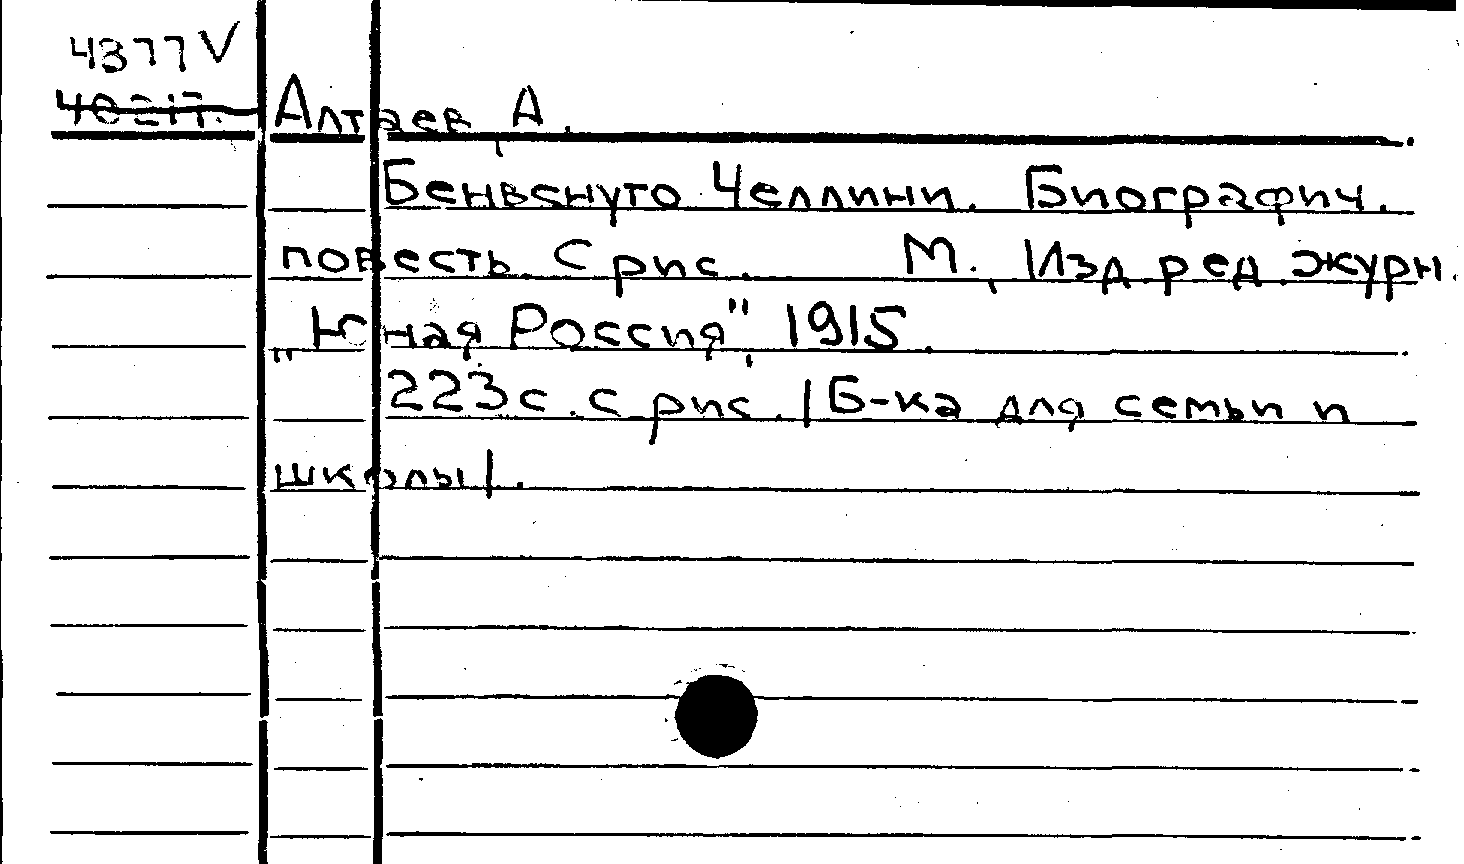 4377 V
Алтаев, А.
Бенвенуто Челлини. Биографич.
повесть. С рис. М., Изд. ред. журн.
„Юная Россия", 1915.
223 с. с рис. /Б-ка для семьи и
школы/.